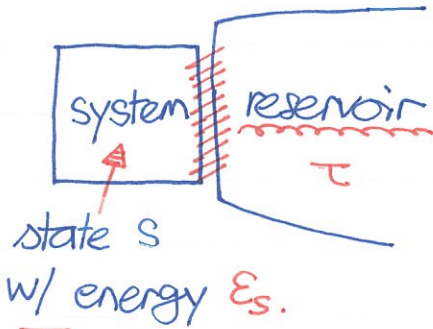 system reservoir
τ
state s
w/ energy εs.